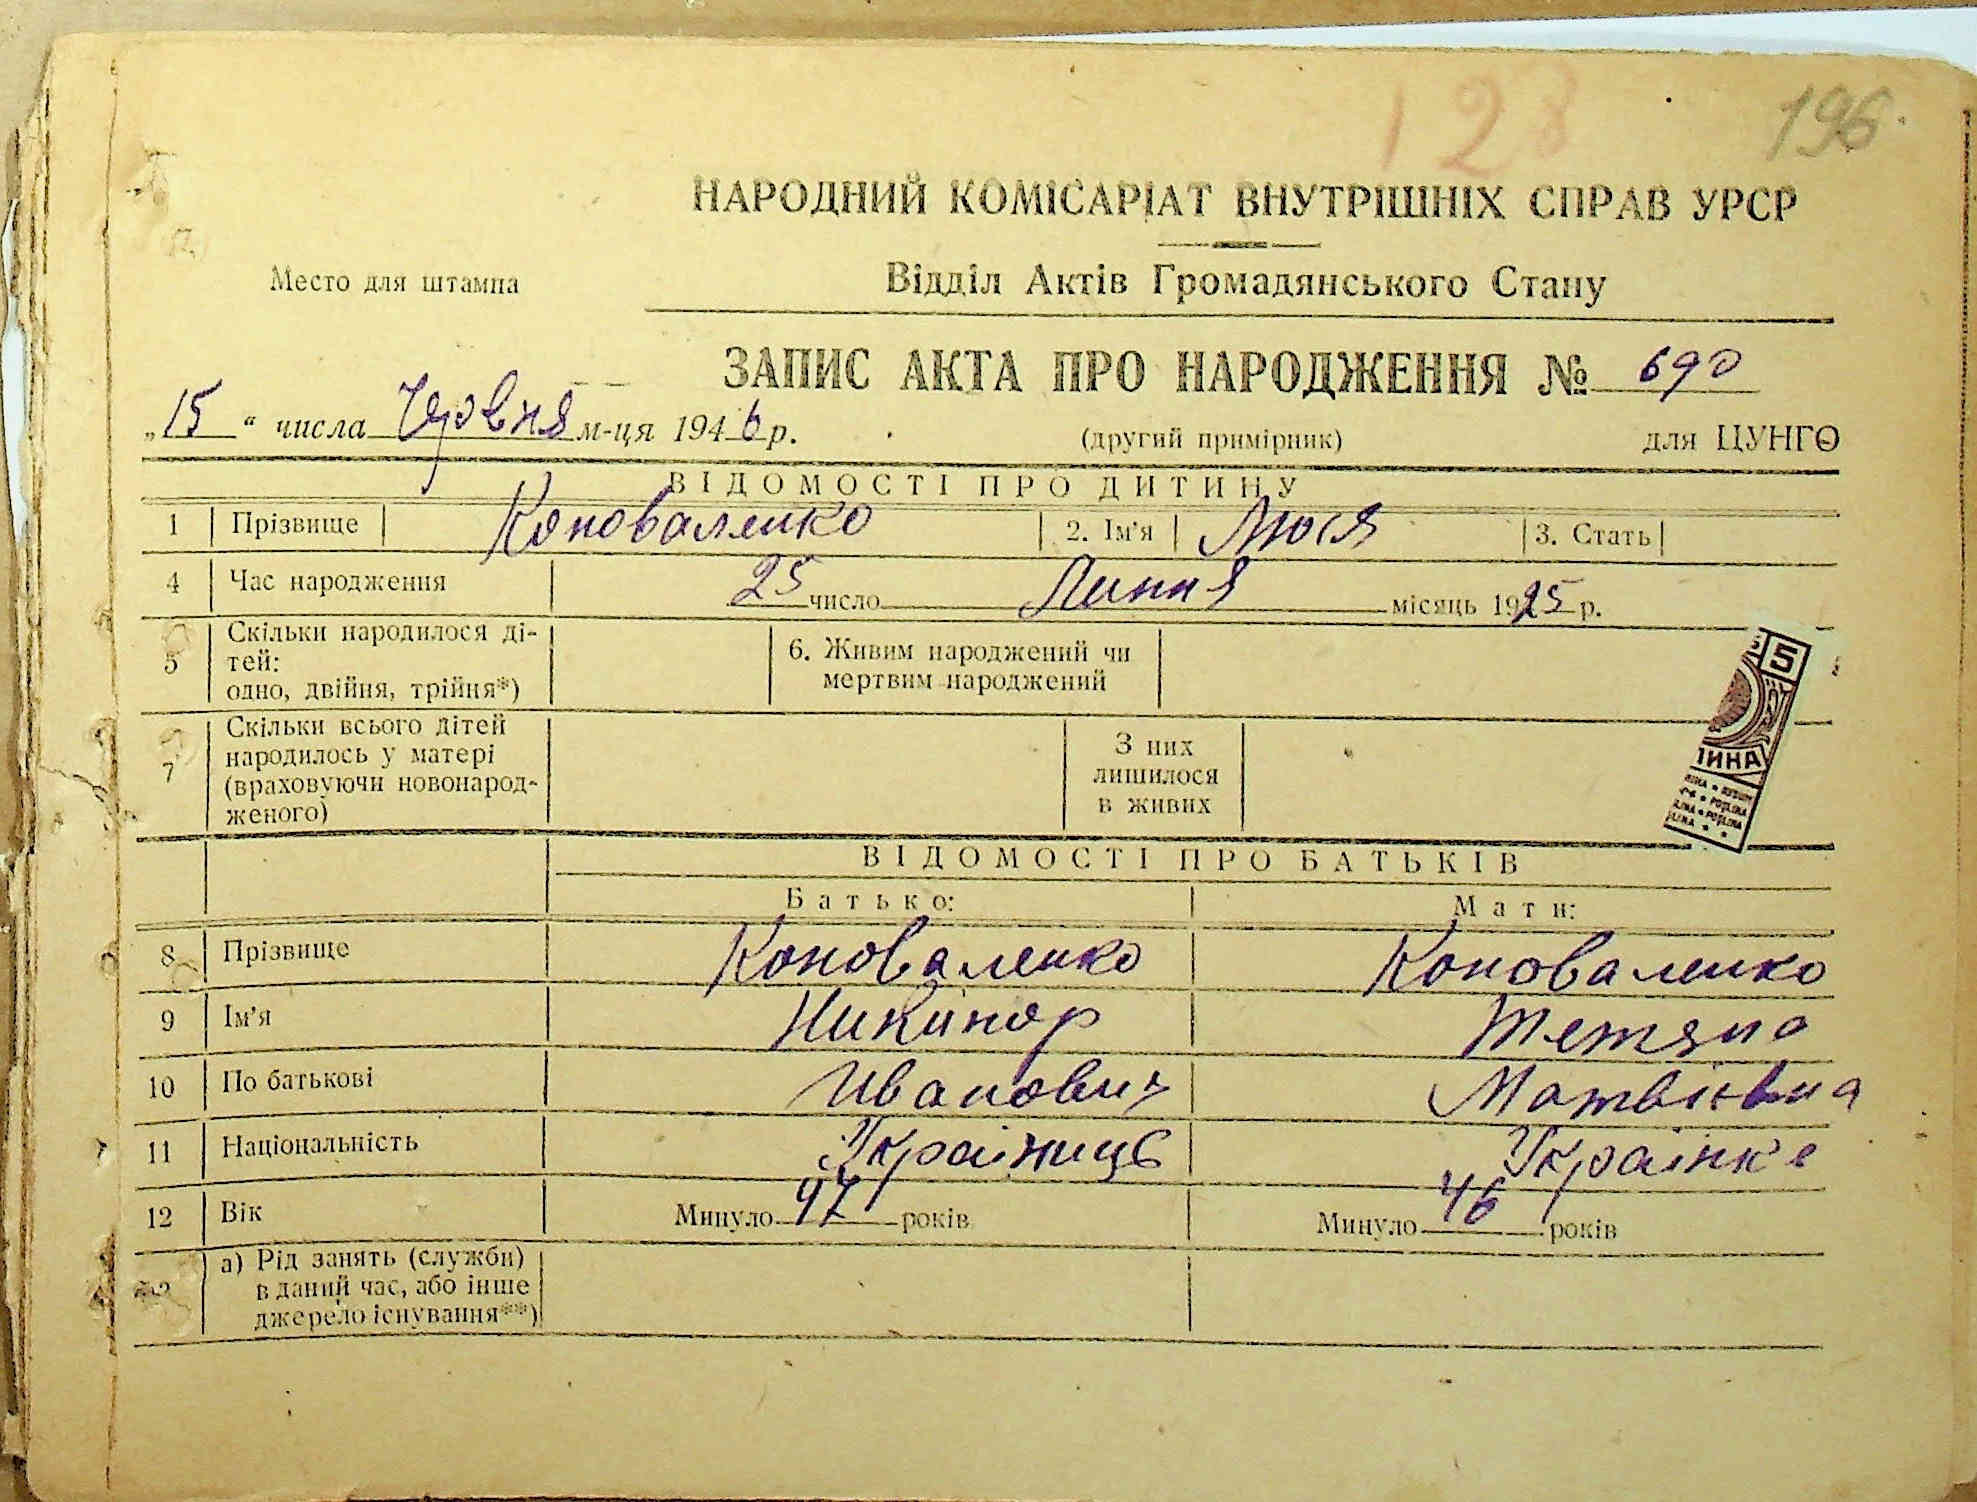 128
196.
НАРОДНИЙ КОМІСАРІАТ ВНУТРІШНІХ СПРАВ УРСР
Место для штампа
Відділ Актів Громадянського Стану
ЗАПИС АКТА ПРО НАРОДЖЕННЯ № 690
„15“ числа Червня м-ця 1946 р. (другий примірник) для ЦУНГО
ВІДОМОСТІ ПРО ДИТИНУ
1 Прізвище Коноваленко 2. Ім'я Люся 3. Стать
4 Час народження 25 число Липня місяць 1925 р.
5 Скільки народилося ді-
тей:
одно, двійня, трійня*)
6. Живим народжений чи
мертвим народжений
7 Скільки всього дітей
народилось у матері
(враховуючи новонарод-
женого)
З них
лишилося
в живих
5
ВІДОМОСТІ ПРО БАТЬКІВ
Батько: Мати:
8 Прізвище Коноваленко Коноваленко
9 Ім'я Никинор Тетяна
10 По батькові Иванович Матвіївна
11 Національність Українець Українка
12 Вік Минуло 47 років Минуло 46 років
а) Рід занять (служби)
в даний час, або інше
джерело існування**)